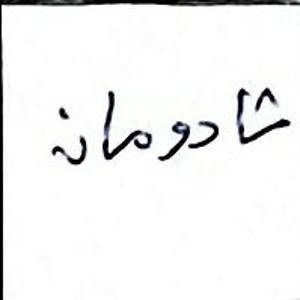 شادومان